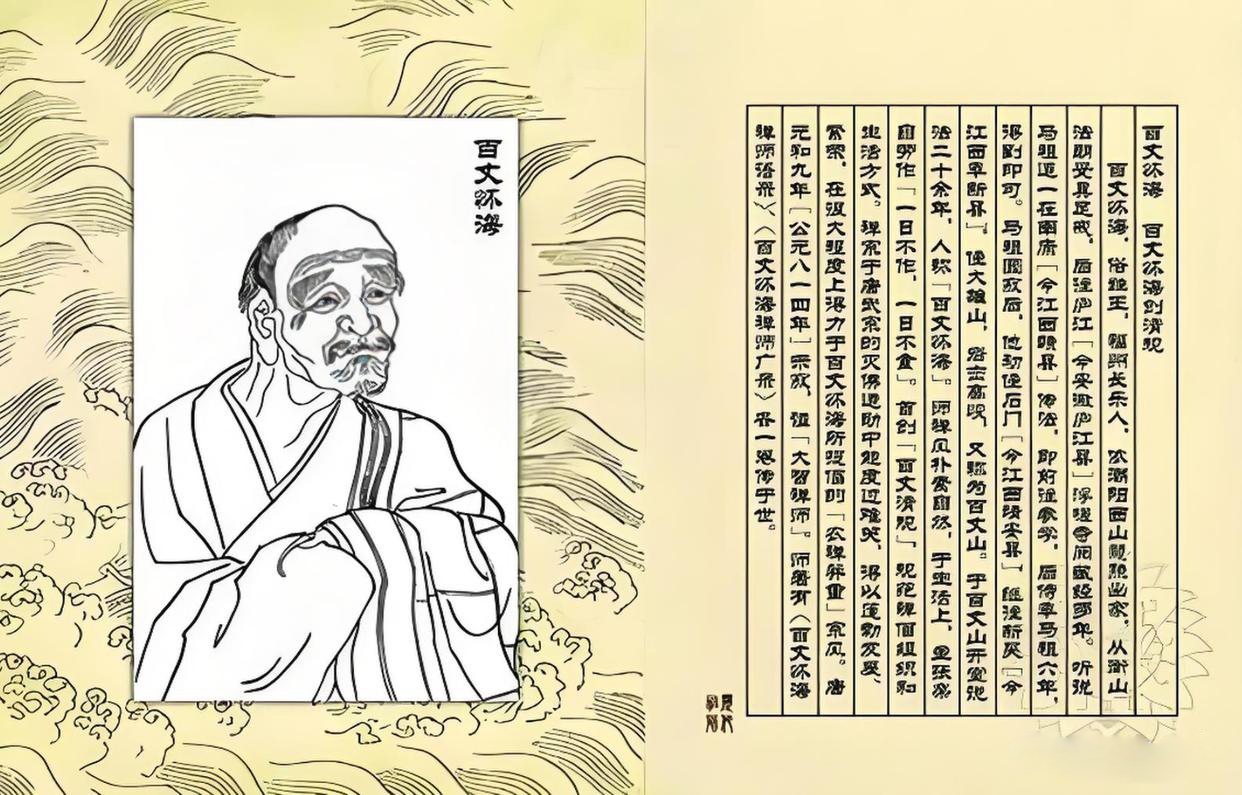 百丈怀海
百丈怀海 百丈怀海创清规
百丈怀海，俗姓王，福州长乐人，依潮阳西山慧照出家，从衡山
法朝受具足戒。后往庐江［今安徽庐江县］浮槎寺阅藏经多年。听说
马祖道一在南康［今江西赣县］传法，即好往参学。后侍奉马祖六年，
得到印可。马祖圆寂后，他初住石门［今江西靖安县］继往新吴［今
江西奉新县］，住大雄山，岩峦高峻，又称为百丈山。于百丈山开堂说
法二十余年，人称「百丈怀海」。师禅风朴实自然，于生活上，
自劳作「一日不作，一日不食」。首创「百丈清规」，规范禅僧组织和
生活方式。禅宗于唐武宗的灭佛运动中能度过难关，得以蓬勃发展、
繁荣，在很大程度上得力于百丈怀海所提倡的「农禅并重」宗风。唐
元和九年［公元八一四年］示寂，谥「大智禅师」。师著有〈百丈怀海
禅师语录〉、〈百丈怀海禅师广录〉各一卷传于世。